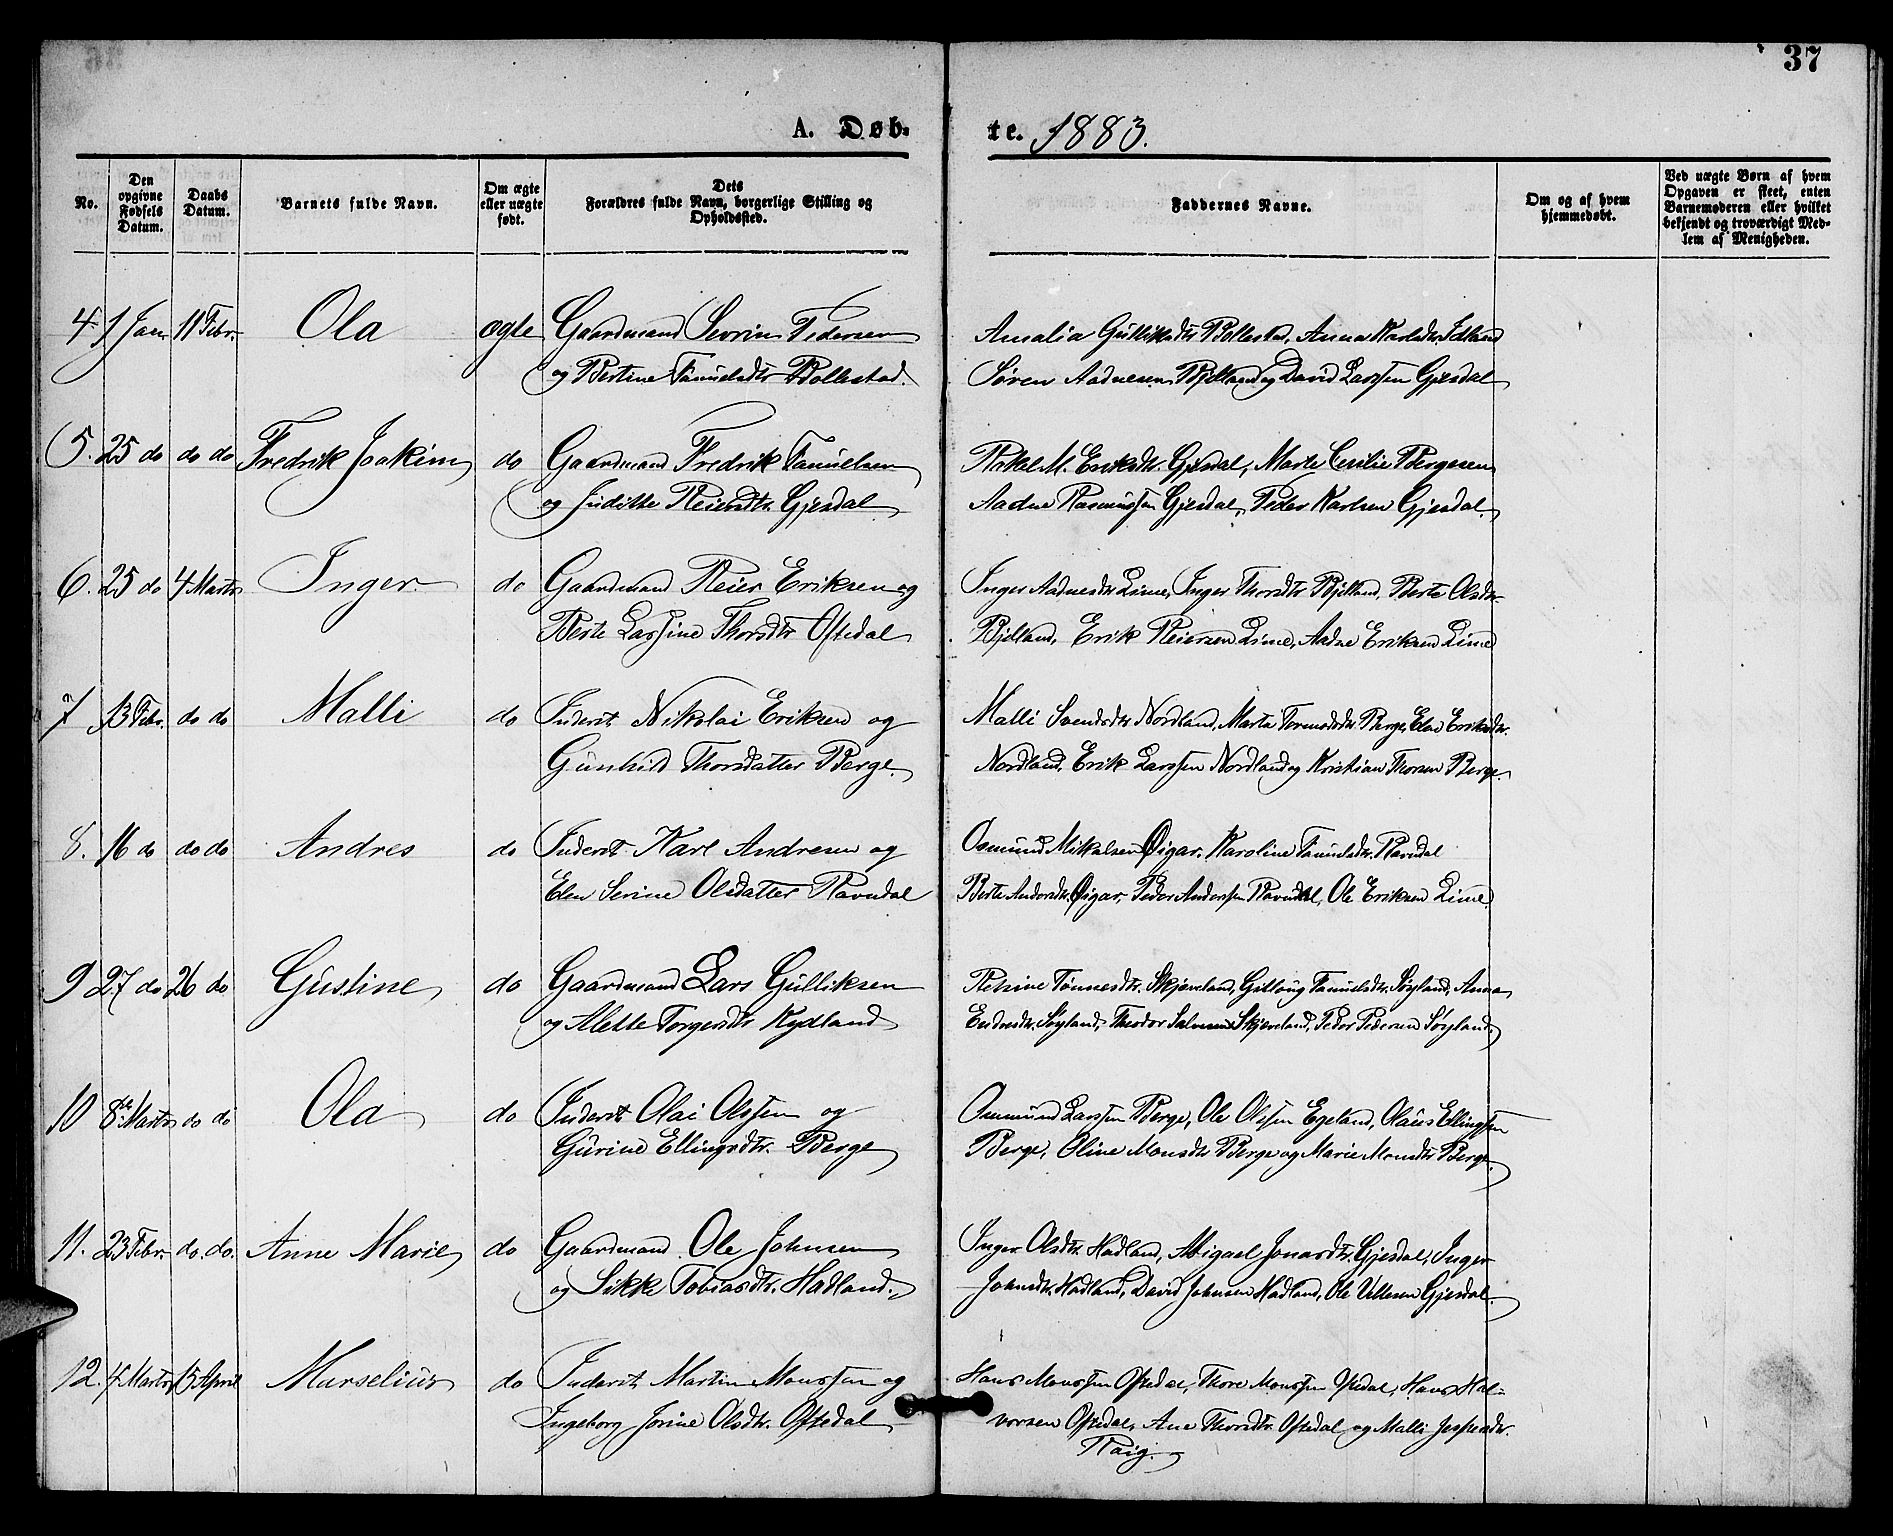 37
A. Døb-
te. 1883.
No.
Den opgivne Fødsels Datum.
Daabs Datum.
Barnets fulde Navn.
Om ægte eller uægte født.
Dets Forældres fulde Navn, borgerlige Stilling og Opholdssted.
Faddernes Navne.
Om og af hvem hjemmedøbt.
Ved uægte Børn af hvem Opgaven er skeet, enten Barnemoderen eller hvilket bekjendt og troværdigt Medlem af Menigheden.
4 1 Jan. 11 Febr. Ola ægte Gaardmand Sevrin Pedersen
og Bertine Samuelsdtr Bollestad.
Amalia Gulliksdtr Bollestad, Anna Karlsdtr Edland
Søren Aadnesen Bjelland og David Larssen Gjesdal
5. 25 do do do Fredrik Joakim do Gaardmand Fredrik Samuelsen
og Judithe Reiersdtr. Gjesdal
Rakel M. Eriksdtr. Gjesdal, Marte Cecilie Bergesen
Aadne Rasmussen Gjesdal, Peder Karlsen Gjesdal.
6. 25 do 4 Marts Inger do Gaardmand Reier Eriksen og
Berte Lassine Thorsdtr Oftedal
Inger Aadnesdtr Lime, Inger Thorsdtr Bjelland, Berte Olsdtr
Bjelland, Erik Reiersen Lime, Aadne Eriksen Lime
7 13 Febr. do do Malli do Inderst Nikolai Eriksen og
Gunhild Thorsdatter Berge.
Malli Svendsdtr Nordland, Marta Tormodsdtr Berge, Elen Eriksdtr.
Nordland, Erik Larssen Nordland og Kristian Thorsen Berge.
8. 16 do do do Andres do Inderst Karl Andresen og
Elen Serine Olsdatter Ravndal
Osmund Mikalsen Øigar, Karoline Samuelsdtr. Ravndal
Berte Andersdtr. Øigar, Peder Anderssen Ravndal, Ole Eriksen Lime.
9 27 do 26 do Gustine do Gaardmand Lars Gulliksen
og Alette Torgersdtr Kydland
Retsine Tønnesdtr. Skjæveland, Gitlaug Samuelsdtr. Søyland, Anna
Endresdtr. Søyland, Theodor Salvesen Skjæveland, Peder Pedersen Søyland.
10 8de Marts do do Ola do Inderst Olai Olssen og
Gurine Ellingsdtr. Berge
Ommund Larssen Berge, Ole Olssen Egeland, Olaus Ellingsen
Berge, Oline Monsdtr Berge og Marie Monsdtr Berge.
11. 23 Febr. do. do. Anne Marie do Gaardmand Ole Johnsen
og Sikke Tobiasdtr. Hadland.
Inger Olsdtr. Hadland, Abigael Jonasdtr. Gjesdal, Inger
Johnsdtr. Hadland, David Johnsen Hadland, Ole Vellesen Gjesdal.
12. 4 Marts 15 April Marselius do Inderst Martin Monssen og
Ingeborg Jorine Olsdtr. Oftedal
Hans Monssen Oftedal, Thore Monssen Oftedal, Hans Hal-
vorsen Oftedal, Ane Thorsdtr. Oftedal og Malli Jespersdtr.
Raig.